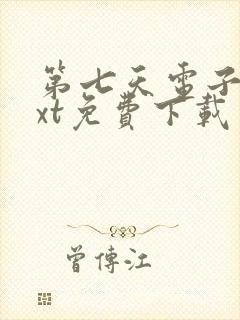 第七天電子
xt免費下載
曾傳江